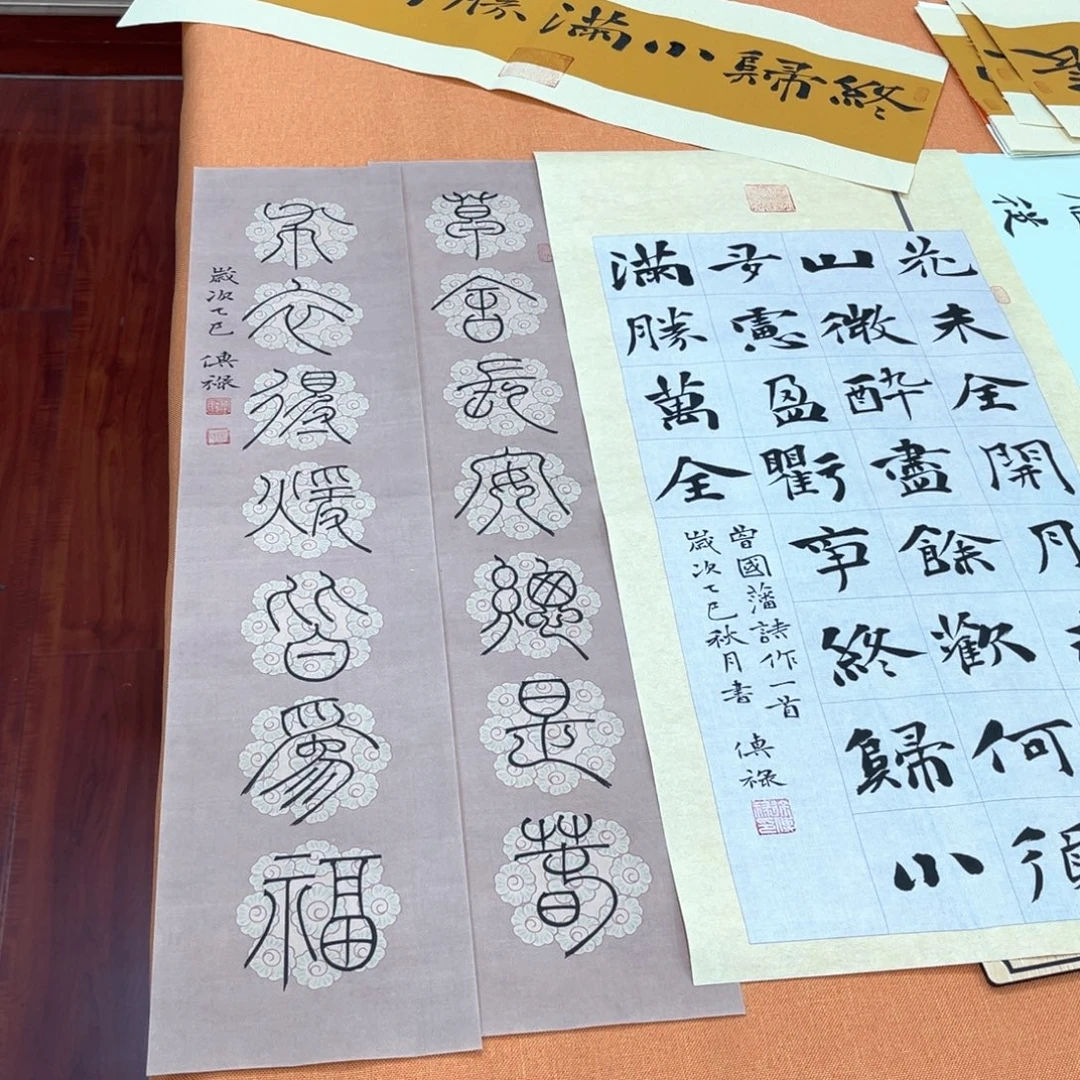 終歸小滿勝
花未全開月
山微醉盡餘歡何須
多慮盈虧事終歸小
滿勝萬全
曾國藩詩作一首
歲次乙巳秋月書 傳祿
草舍長安總是春
布衣得煖皆爲福
歲次乙巳 傳祿